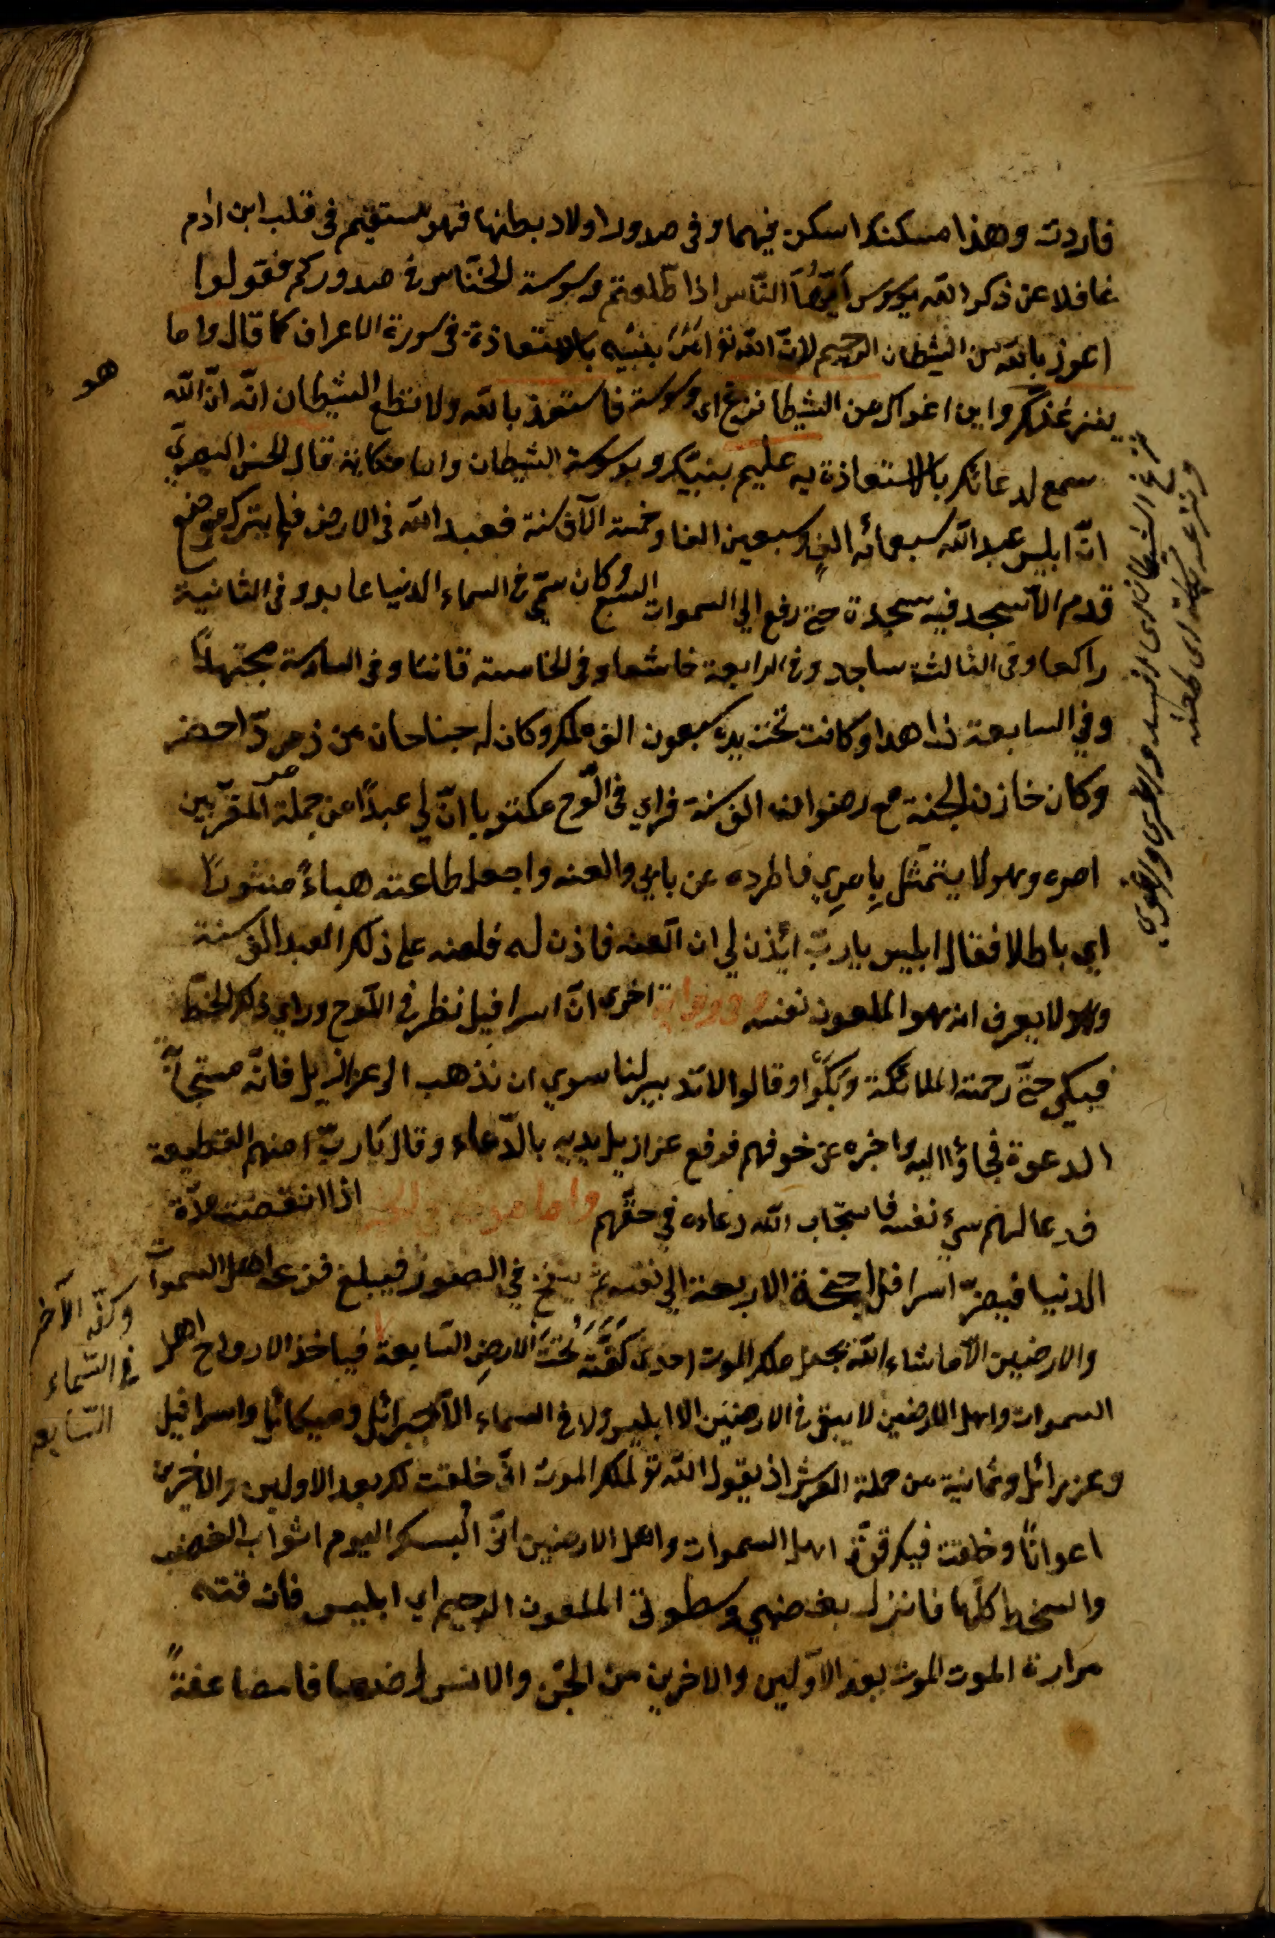 فاردت وهذا مسكنك اسكن فيهما وفى صدور اولاد بطنها فهو مستقيم فى قلب ابن ادم
غافلا عن ذكر الله يوسوس ايّها النّاس اذا طلعتم وسوسة الخنّاس فى صدوركم فقولوا
اعوذ بالله من الشيطان الرجيم لانّ الله تع امر بنبيه بالاستعاذة فى سورة الاعراف كما قال واما
ينزغنك واين اغواك من الشيطان نزغ اى وسوسة فاستعذ بالله ولا تطع الشيطان انّه انّ الله
هو
سميع لدعائك بالاستعاذة به عليم بنيتك وبوسوسة الشيطان واما حكاية قال الحسن البصرى
انّ ابليس عبد الله سبعمائه الفٍ وسبعين الفا وخمسة الآف سنة فعبد الله فى الارض فلم يترك موضع
قدم الّا سجد فيه سجدة حتى رفع الى السموات السبع وكان سمّى فى السماء الدنيا عابد وفى الثانية
راكعا وفى الثالثة ساجد وفى الرابعة خاشعا وفى الخامسة قانتا وفى السادسة مجتهدًا
وفي السابعة زاهدا وكانت تحت يده سبعون الف ملك وكان له جناحان من زمردّ اخضر
وكان خازن الجنة مع رضوان الف سنة فراي فى الّوح مكتوبا انّ لي عبدًا من جملة المقرّبين
امره وهو لا يتمثّل بامري فاطرده عن بابي والعنه واجعل طاعته هباءً منثورًا
اي باطلا فقال ابليس يا ربّ ائذن لي ان العنه فاذن له فلعنه على ذلك العبد الف سنة
وهو لا يعرف انه هو الملعون نفسه وفى رواية اخرى انّ اسرافيل نظر في اللّوح وراي ذلك الخطّ
فبكى حتّى رحمته الملائكة وبكؤا وقالوا لا تدبير لنا سوي ان نذهب الى عزازيل فانّه مستجاب
الدعوة فجاؤا اليه واخبره عن خوفهم فرفع عزازيل يديه بالدّعاء وقال يا ربّ امنهم القطيعة
فدعا لهم سوى نفسه فاستجاب الله دعاءه في حقّهم واما اذا انقضت مدّة
الدنيا فيضمّ اسرافيل اجنحة الاربعة الي نفسه ثم ينفخ في الصور فيبلغ فزعه اهل السموات
والارضين الّا ما شاء الله يجعل ملك الموت احدى كفّه تَحْتَ الارضِ السّابعة فياخذ الارواح اهل
وكفّه الآخر
فى السّماء
السّابعة
السموات واهل الارضين لا يبقى فى الارضين الا ابليس ولا فى السماء الّا جبرائيل وميكائيل واسرافيل
وعزرائل وثمانية من حملة العرش اذ يقول الله تع لملك الموت انّى خلقت لك بعدد الاولين والاخرين
اعوانًا وخلقت فيك قوّة اهل السموات واهل الارضين انّى البسك اليوم اثواب الغضب
والسخط كلّها فانزل بغضبي وسطوتى الملعون الرجيم اي ابليس فان قته
مرارة الموت الموت بعدد الاوّلين والاخرين من الجنّ والانس اضعافا مضاعفةً
نزغ الشيطان
ونزغه بكلمة اى طعنه